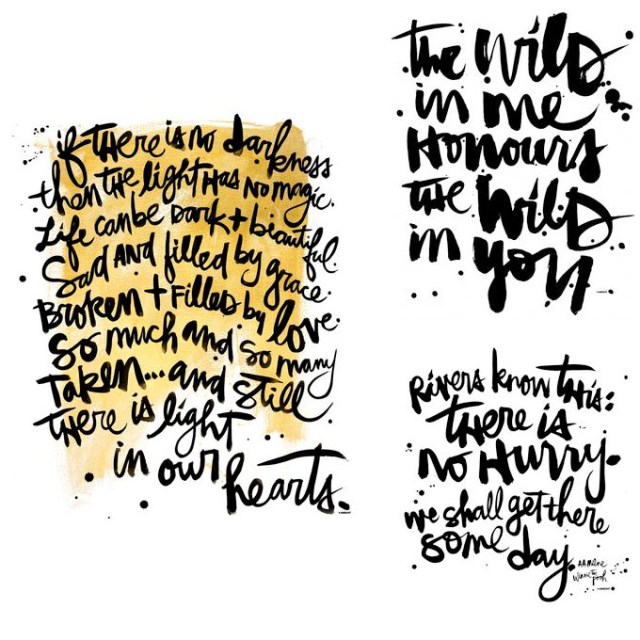 if there is no darkness
then the light has no magic.
Life can be Dark + beautiful.
Sad and filled by grace.
Broken + Filled by love.
So much and so many
Taken... and still
there is light
in our hearts.
the Wild
in me
Honours
the Wild
in you
Rivers know this:
there is
no Hurry.
we shall get there
some day.
AA Milne
Winnie the
pooh